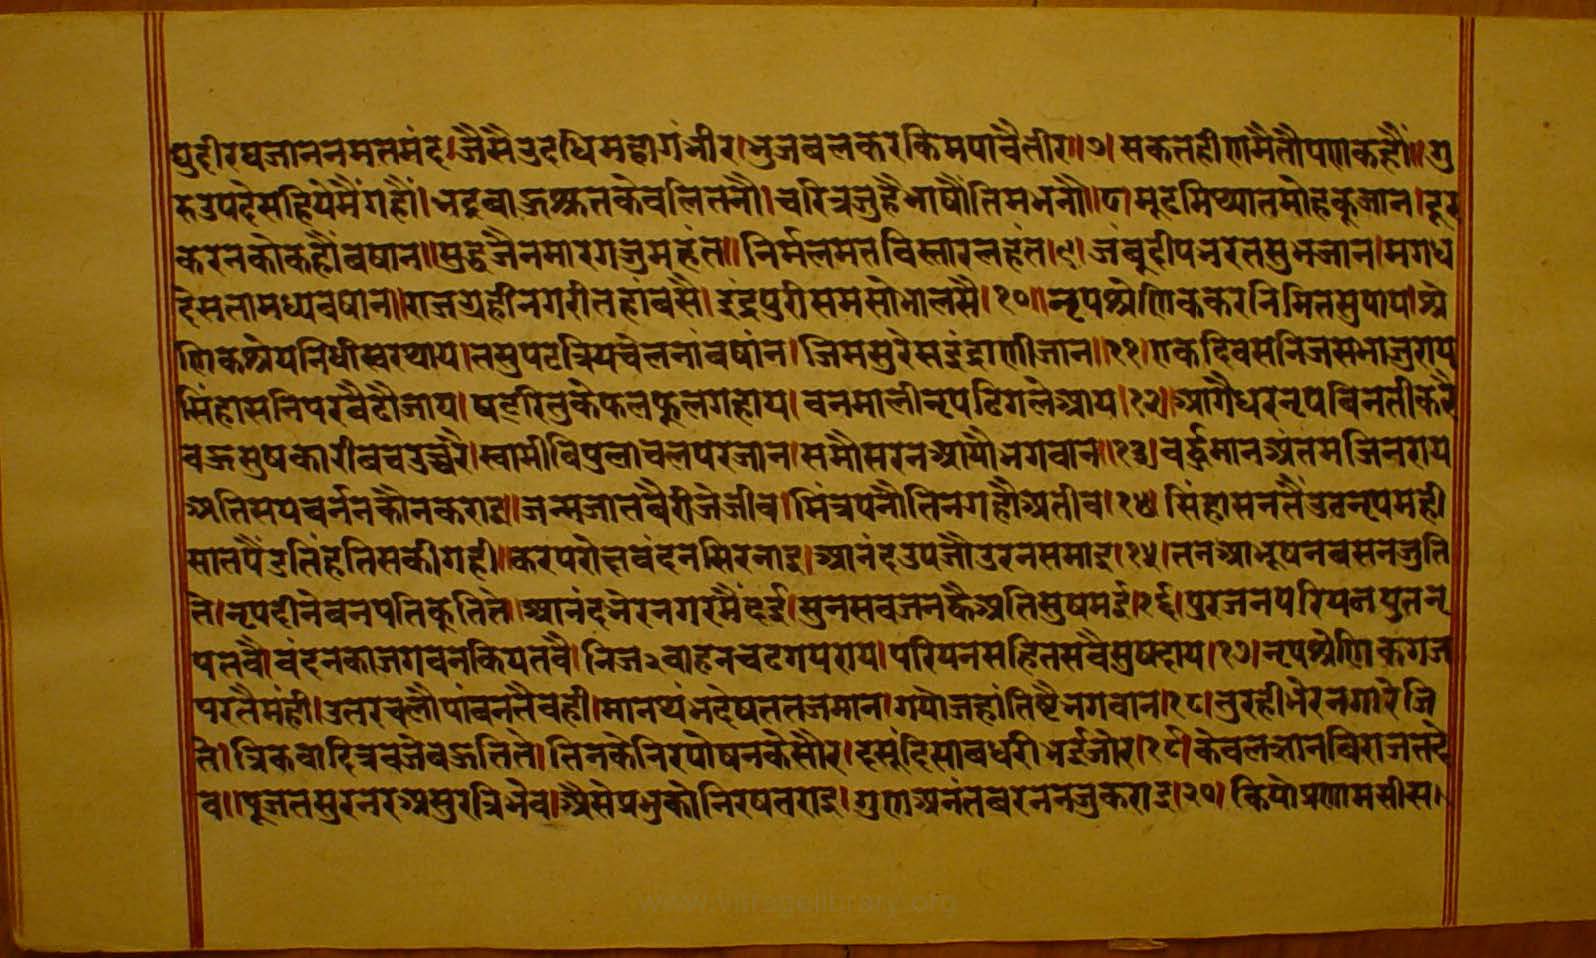 घुदीरघजाननमतमंद।जैसैउदधिमहागंभीर।भुजबलकरकिमपावैतीर॥७।सकतहीणमैतौपणकहौं॥गु
रुउपदेसहियेमैंगहौं।भद्रबाऊश्रुतकेवलितनौ।चरित्रजुहैभाषौंतिमभनौ॥८।मूढमिथ्यातमोहकुजान।दूर
करनकौकहौंबषान॥सुद्धजैनमारगजुमहंत॥निर्मलमतविस्तारलहंत।९।जंबूदीपभरतसुभजान।मगध
देसतामध्यबषान॥राजग्रहीनगरीतहांबसै।इंद्रपुरीसमसोभालसै।१०॥नृपश्रेणिककरनिमितसुपाय।श्रे
णिकश्रेयनिधीस्वरथाय।तसुपटत्रियचेलनांबषांन।जिमसुरेसइंद्राणीजान॥११।एकदिवसनिजसभाजुराय
सिंहासनिपरबैठौजाय।षटरितुकेफलफूलगहाय।वनमालीनृपढिगलेआय।१२।आगैधरनृपविनतीकरै
बऊसुषकारीबचउच्चरै।स्वामीविपुलाचलपरजान।समौसरनआयौभगवान॥१३।वर्द्धमानअंतमजिनराय
अतिसयवर्ननकौनकराइ॥जन्मजातबैरीजेजीव।मिंत्रपनौतिनगहौअतीव।१४।सिंहासनतैंउठनृपमही
सातपैंडतिंहदिसकीगही॥करपरोक्षबंदनसिरनाइ।आनंदउपजौउरनसमाइ।१५।तनआभूषनबसनजुति
ते।नृपदीनेबनपतिकुतिते।आनंदभेरनगरमैंदई।सुनसबजनकैअतिसुषमई।१६।पुरजनपरियनपुतनृ
पतबै।बंदनकाजगवनकियतबै।निज२वाहनचढगयराय।परियनसहितसबैसुषदाय।१७।नृपश्रेणिकगज
परतैमंही।उतरचलौपांवनतैवही।मानथंभदेषततजमान।गयोजहांतिष्टैभगवान।१८।तुरहीभेरनगारेजि
ते।त्रिकवादित्रबजेबऊतिते।तिनकेनिरघोषनकेसौर।दसूंदिसाबधरीभईजोर।१९।केवलज्ञानबिराजतदे
व॥पूजतसुरनरअसुरत्रिभेव।अैसेप्रभुकोनिरषतराइ।गुणअनंतबरेननजुकराइ।२०।कियोप्रणामसीस।
www.vitragelibrary.org